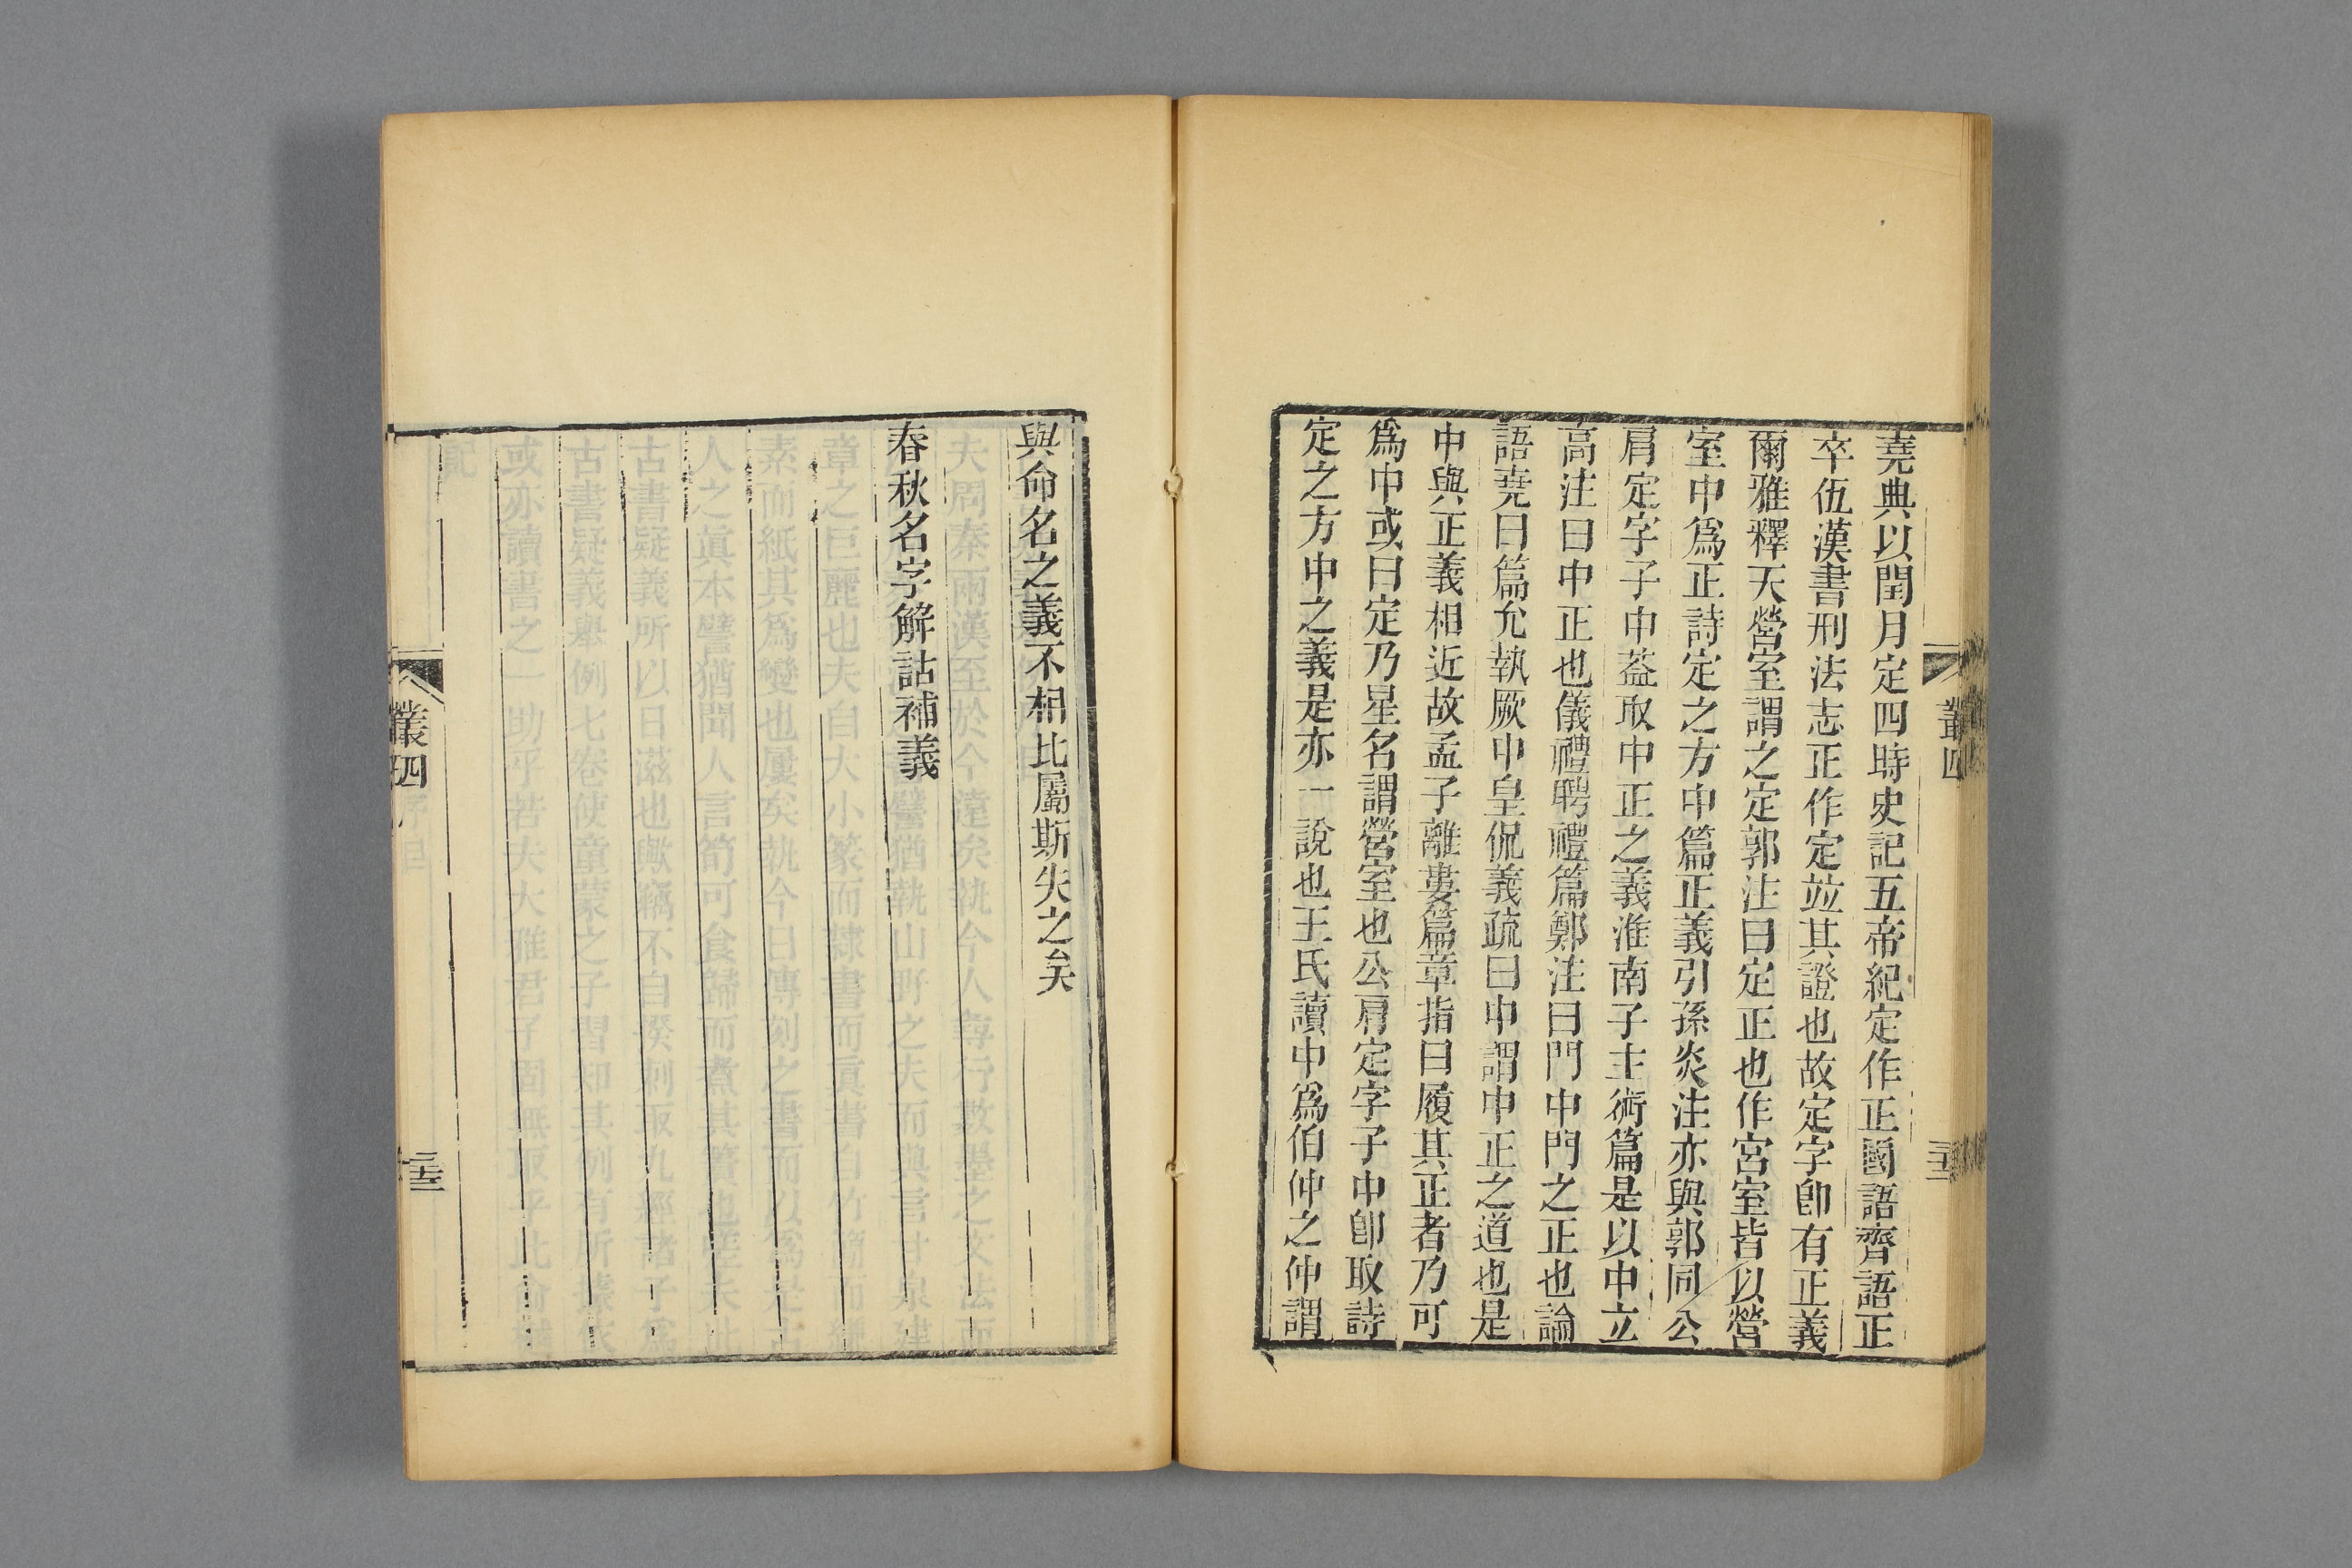 堯典以閏月定四時史記五帝紀定作正國語齊語正
卒伍漢書刑法志正作定竝其證也故定字卽有正義
爾雅釋天營室謂之定郭注曰定正也作宮室皆以營
室中爲正詩定之方中篇正義引孫炎注亦與郭同公
肩定字子中葢取中正之義淮南子主術篇是以中立
高注曰中正也儀禮聘禮篇鄭注曰門中門之正也論
語堯曰篇允執厥中皇侃義疏曰中謂中正之道也是
中與正義相近故孟子離婁篇章指曰履其正者乃可
爲中或曰定乃星名謂營室也公肩定字子中卽取詩
定之方中之義是亦一說也王氏讀中爲伯仲之仲謂
叢四
與命名之義不相比屬斯失之矣
春秋名字解詁補義
叢四